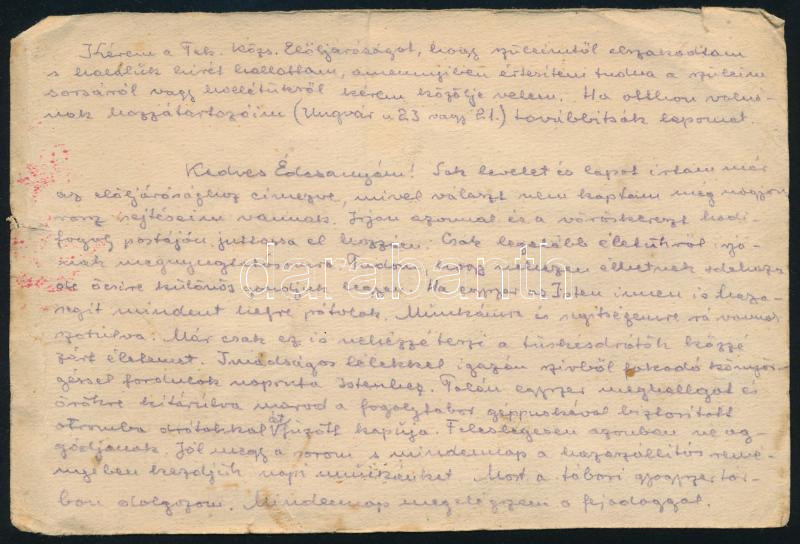 Kérem a Tek. Közs. Elöljáróságot, hogy szüleimtől elszakadtam
s halálük hirét hallottam, amennyiben értesiteni tudna a szüleim
sorsáról vagy hollétükről kérem közölje velem. Ha otthon volná-
nak hozzátartozóim (Ungvár u 23 vagy 21.) továbbitsák lapomat.
Kedves Édesanyám! Sok levelet és lapot irtam már
az elöljárósághoz cimezve, mivel választ nem kaptam még nagyon
rossz sejtéseim vannak. Irjon azonnal és a vöröskereszt hadi-
fogoly postáján juttassa el hozzám. Csak legalább életükről
megnyugtatásomra Tudom hogy nehezen élhetnek odahaza
de öcsire különös gondjuk legyen. Ha egyszer az Isten innen is haza
segit mindent helyre pótolok. Munkámra és segitségemre rá vannak
szorulva. Már csak ez is nehézzé teszi a tüskésdrótok közzé
zárt életemet. Imádságos lélekkel igazán szivből fakadó könyör-
géssel fordulok naponta Istenhez. Talán egyszer meghallgat és
örökre kitárulva marad a fogolytábor géppuskával biztositott
otromba drótokkal átfűzött kapuja. Feleslegesen azonban ne ag-
gódjanak. Jól megy a sorom s mindennap a hazaszállitás remé-
nyében kezdjük napi munkánkat. Most a tábori gyógyszertár-
ban dolgozom. Mindennap megelégszem a fejadaggal.
darabanth